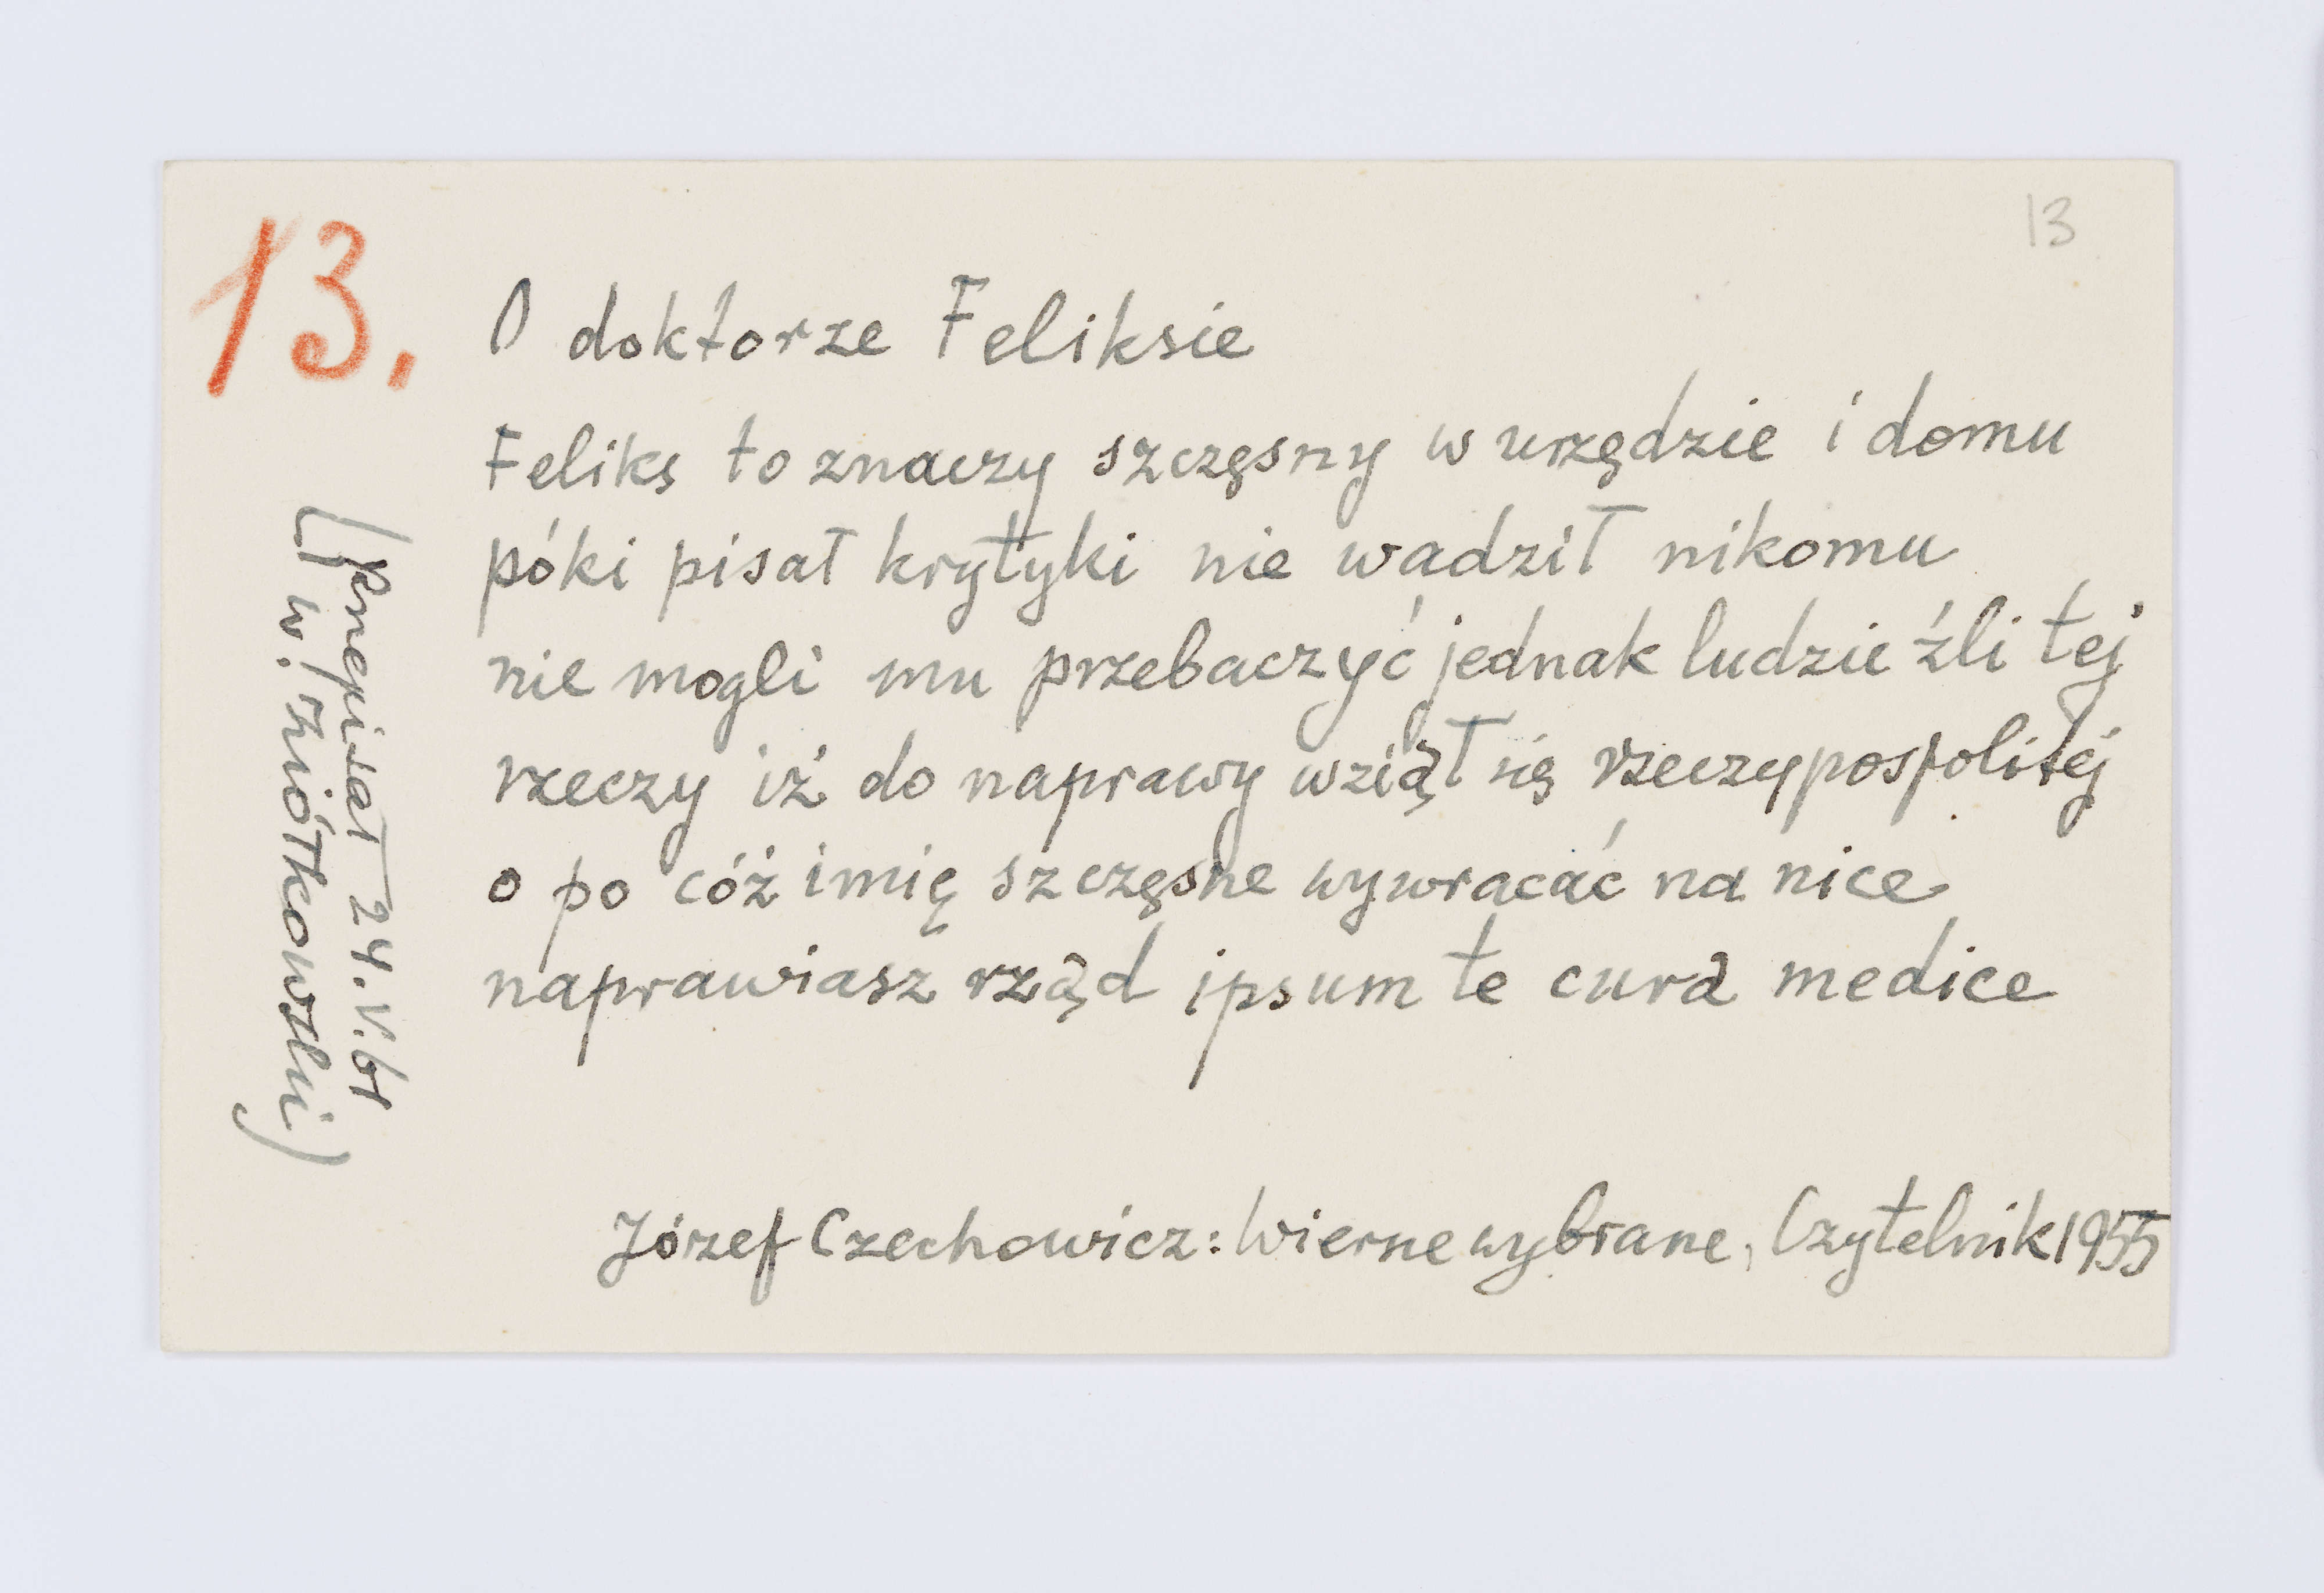 13.
13
O doktorze Feliksie
Feliks to znaczy szczęsny w urzędzie i domu
póki pisał krytyki nie wadził nikomu
nie mogli mu przebaczyć jednak ludzie źli tej
rzeczy iż do naprawy wziął się rzeczypospolitej
o po cóż imię szczęsne wywracać na nice
naprawiasz rząd ipsum te cura medice
Józef Czechowicz: Wiersze wybrane, Czytelnik 1955
(przepisał 24.V.61
W. Ziółkowski)